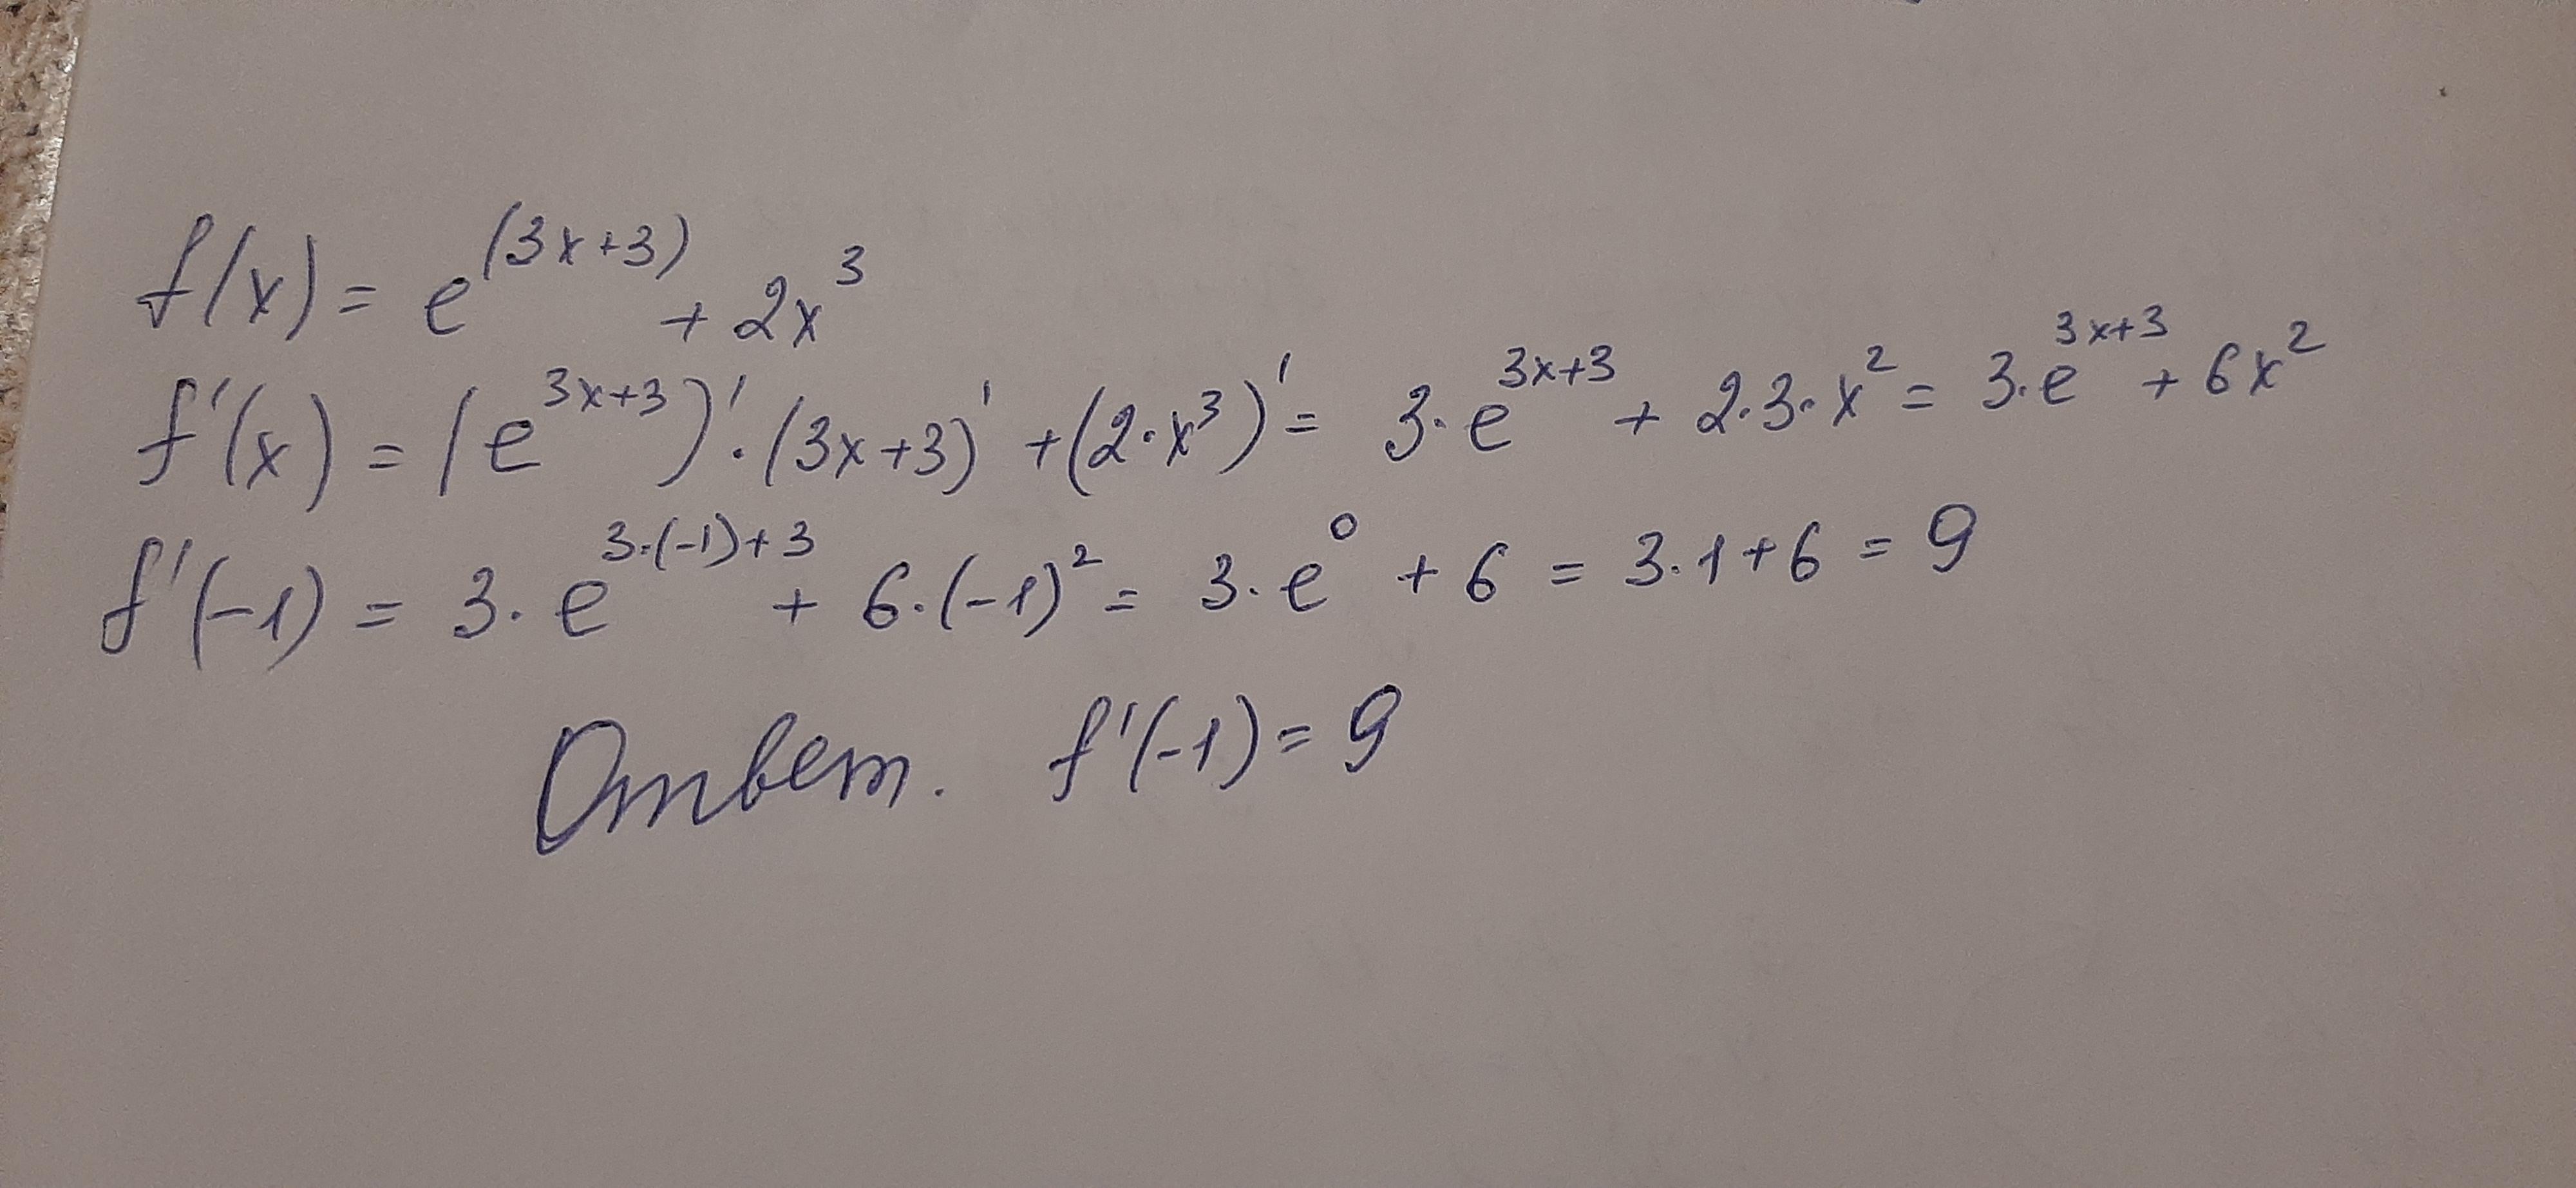 f(x) = e^(3x+3) + 2x^3
f'(x) = (e^{3x+3})' · (3x+3)' + (2·x^3)' = 3·e^{3x+3} + 2·3·x^2 = 3·e^{3x+3} + 6x^2
f'(-1) = 3·e^{3·(-1)+3} + 6·(-1)^2 = 3·e^0 + 6 = 3·1+6 = 9
Ответ. f'(-1) = 9